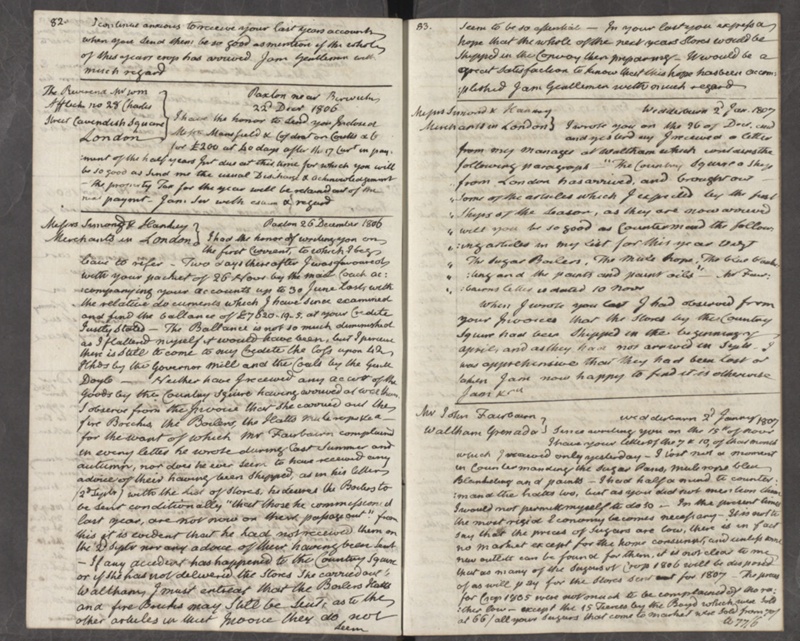 82.
I continue anxious to receive your last years accounts
when you send them be so good as mention if the whole
of this years crop has arrived I am Gentlemen with
much regard
The Reverend Mr Wm
Affleck no 28 Charles
Street Cavendish Square
London
Paxton near Berwick
22d Decr 1806
I have the honor to send you Inclosed
Messrs Mansfield & Co's draft on Coutts & Co
for £200 at 40 days after the 17 Curt in pay-
ment of the half years Int due at this time for which you will
be so good as send me the usual Discharge & acknowledgement
- the property Tax for the year will be retained out of the
next payment. I am Sir with esteem & regard
Messrs Simond & Hankey
Merchants in London
Paxton 26 December 1806
I had the honor of writing you on
the first Current, to which I beg
leave to refer - Two days thereafter I was favoured
with your packet of 26 Novr by the mail Coach ac:
:companying your accounts up to 30 June last, with
the relative documents which I have since examined
and find the ballance of £7820-19-5. at your Credite
Justly Stated - The Ballance is not so much diminished
as I flattend myself it would have been, but I perceive
there is still to come to my Credite the Cofs upon 42
Phds by the Governor Mill and the Coals by the
Doyle - Neither have I received any acct of the
Goods by the Country Squire having arrived at Waltham.
I observe from the Invoice that she carried out the
fire Bricks, the Boilers, the Hatts Mule rope &c
for the want of which Mr Fairbairn complained
in every letter he wrote during last Summer and
autumn, nor does he ever seem to have received any
advice of their having been shipped, as in his letter
(2d Septr) with the List of Stores, he desires the Boilers to
be sent conditionally "that those he commissioned
last year, are not now on their passage out" from
this it is evident that he had not received them on
the 2 Septr nor any advice of their having been sent
- If any accident has happened to the Country Squire
or if she has not delivered the Stores She carried out
Waltham, I must entreat that the Boilers Hatts
and fire Bricks may Still be Sent; as to the
other articles in that Invoice they do not
seem
83.
Seem to be so essential - In your last you express a
hope that the whole of the next years Stores would be
shipped in the Conway then preparing - It would be a
great Satisfaction to know that this hope has been accom
:plished I am Gentlemen with much regard
Messrs Simond & Hankey
Merchants in London
Wedderburn 2d Jan. 1807
I wrote you on the 26 of Decr. and
and next day I received a letter
from my manager at Waltham which contains the
following paragraph "The Country Squire a Ship
from London has arrived and brought out
" Some of the articles which I expected by the first
" Ships of the Season, as they are now arrived
" will you be so good as Countermand the follow
" :ing articles in my list for this year Vizt
" The Sugar Boilers, The Mule rope, The blue blank
" :ting and the paints and paint oils" - Mr Fair:
:bairns letter is dated 10 Novr
When I wrote you last I had observed from
your Invoices that the Stores by the Country
Squire had been Shipped in the beginning of
april, and as they had not arrived in Septr. I
was apprehensive that they had been lost or
taken I am now happy to find it is otherwise
I am &ca
Mr John Fairbairn
Waltham Grenada
Wedderburn 3d Janry 1807
Since writing you on the 15th of Novr
I have your letter of the 7 & 10 of that month
which I received only yesterday - I lost not a moment
in Countermanding the Sugar Pans, mule rope blue
Blanketing and paints - I had half a mind to counter:
:mand the hatts too, but as you did not mention them
I would not permitt myself to do so - In the present times
the most rigid Economy becomes necessary - It is not to
say that the prices of Sugars are low, there is in fact
no market except for the home consumpt, and unless some
new outlett can be found for them, it is not clear to me
that as many of the Sugars of Crop 1806 will be disposed
of as will pay for the Stores sent out for 1807 - The prices
for Crop 1805 were not much to be complained of tho ra:
:ther low - except the 15 Tierces by the Boyd which were Sold
at 66/ all your Sugars that came to market were Sold from 70/
to 77/6